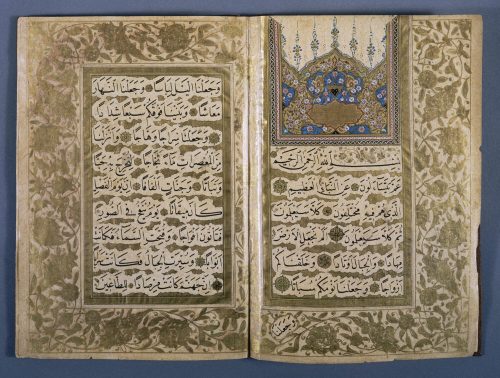 بِسْمِ اللَّهِ الرَّحْمَنِ الرَّحِيمِ
عَمَّ يَتَسَاءَلُونَ عَنِ النَّبَإِ الْعَظِيمِ
الَّذِي هُمْ فِيهِ مُخْتَلِفُونَ كَلَّا سَيَعْلَمُونَ
ثُمَّ كَلَّا سَيَعْلَمُونَ أَلَمْ نَجْعَلِ الْأَرْضَ
مِهَادًا وَالْجِبَالَ أَوْتَادًا وَخَلَقْنَاكُمْ
أَزْوَاجًا وَجَعَلْنَا نَوْمَكُمْ سُبَاتًا
وجعلنا
وَجَعَلْنَا اللَّيْلَ لِبَاسًا وَجَعَلْنَا النَّهَارَ
مَعَاشًا وَبَنَيْنَا فَوْقَكُمْ سَبْعًا شِدَادًا
وَجَعَلْنَا سِرَاجًا وَهَّاجًا وَأَنْزَلْنَا
مِنَ الْمُعْصِرَاتِ مَاءً ثَجَّاجًا لِنُخْرِجَ بِهِ حَبًّا
وَنَبَاتًا وَجَنَّاتٍ أَلْفَافًا إِنَّ يَوْمَ الْفَصْلِ
كَانَ مِيقَاتًا يَوْمَ يُنْفَخُ فِي الصُّورِ
فَتَأْتُونَ أَفْوَاجًا وَفُتِحَتِ السَّمَاءُ فَكَانَتْ
أَبْوَابًا وَسُيِّرَتِ الْجِبَالُ فَكَانَتْ سَرَابًا
إِنَّ جَهَنَّمَ كَانَتْ مِرْصَادًا لِلطَّاغِينَ